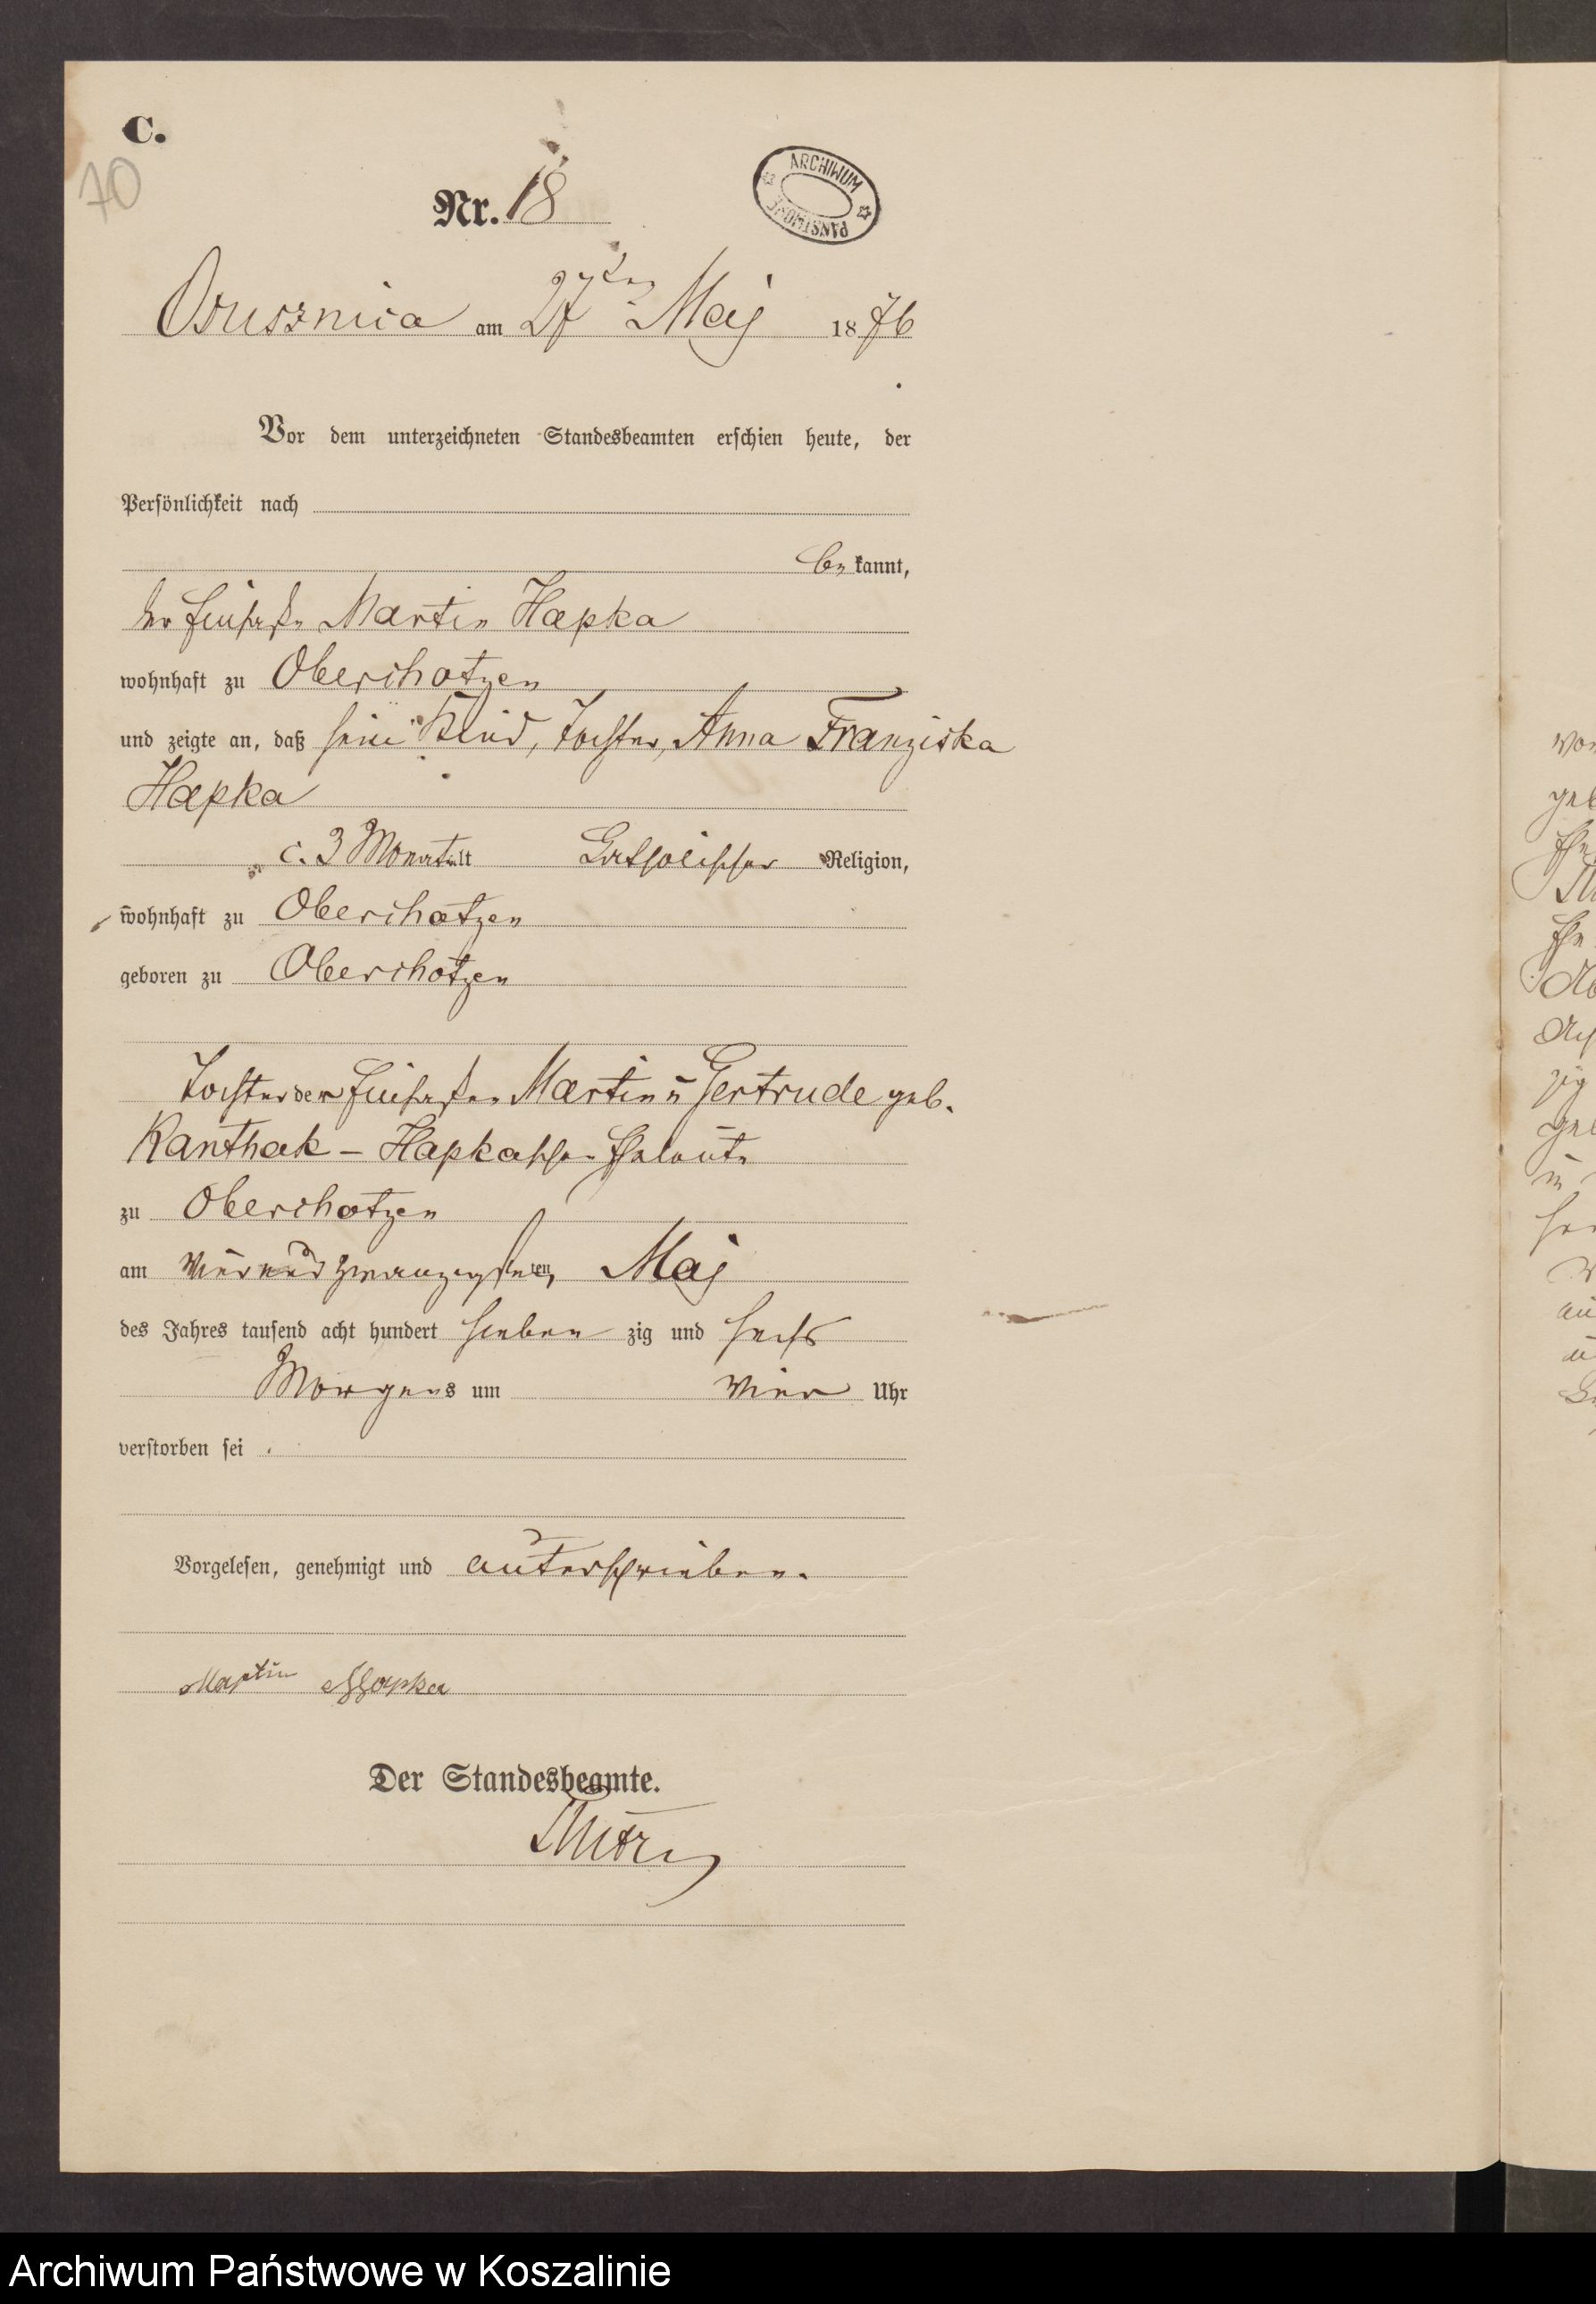 C.
70
Nr. 18
ARCHIWUM PAŃSTWOWE
Ossusznica am 27ten Maj 1876
Vor dem unterzeichneten Standesbeamten erschien heute, der
Persönlichkeit nach
be kannt,
der Einsaße Martin Hapka
wohnhaft zu Oberchotzen
und zeigte an, daß sein Kind, Tochter, Anna Franziska
Hapka
c. 3 Monat alt Catholischer Religion,
wohnhaft zu Oberchotzen
geboren zu Oberchotzen
Tochter der Einsaßen Martin u Gertrude geb.
Kanthak – Hapkaschen Eheleute
zu Oberchotzen
am vier und zwanzigsten ten Maj
des Jahres tausend acht hundert sieben zig und sechs
Morgens um vier Uhr
verstorben sei .
Vorgelesen, genehmigt und unterschrieben.
Martin Hapka
Der Standesbeamte.
von
geb
Archiwum Państwowe w Koszalinie